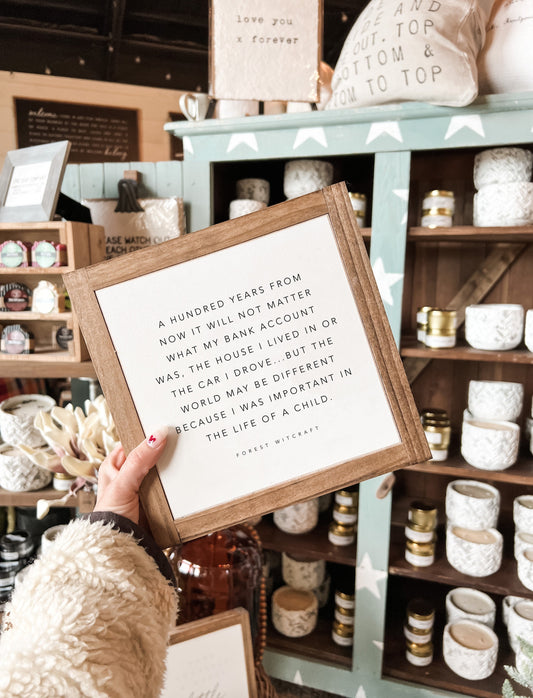 love you
x forever
E AND
OUT. TOP
OTTOM &
OM TO TOP
welcome
EASE WATCH
EACH O
A HUNDRED YEARS FROM
NOW IT WILL NOT MATTER
WHAT MY BANK ACCOUNT
WAS, THE HOUSE I LIVED IN OR
THE CAR I DROVE...BUT THE
WORLD MAY BE DIFFERENT
BECAUSE I WAS IMPORTANT IN
THE LIFE OF A CHILD.
FOREST WITCRAFT